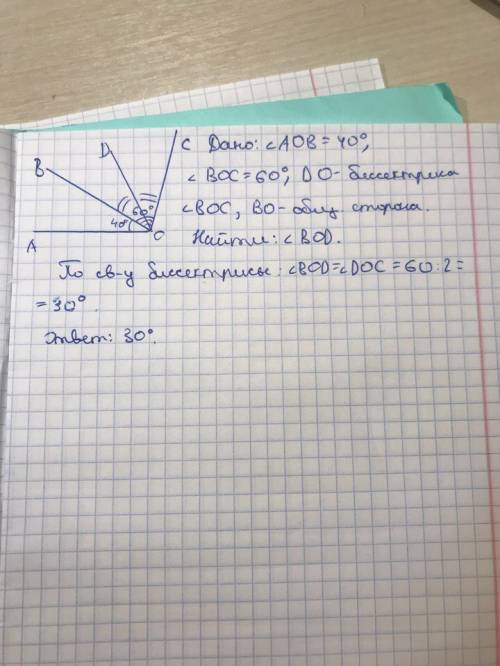 C Дано: ∠AOB = 40°,
∠BOC = 60°, DO - биссектриса
∠BOC, BO - общ. сторона.
Найти: ∠BOD.
D
B
60°
40°
O
A
По св-у биссектрисы: ∠BOD = ∠DOC = 60 : 2 =
= 30°.
Ответ: 30°.